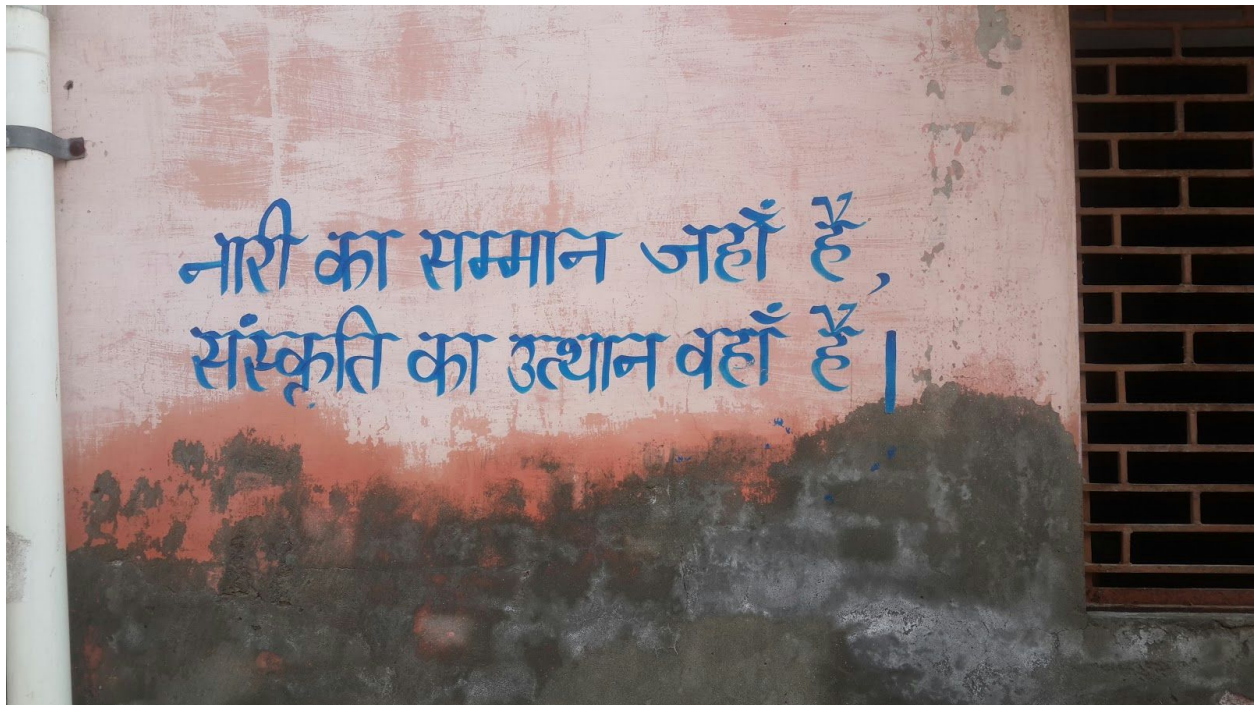 नारी का सम्मान जहाँ है,
संस्कृति का उत्थान वहाँ है।